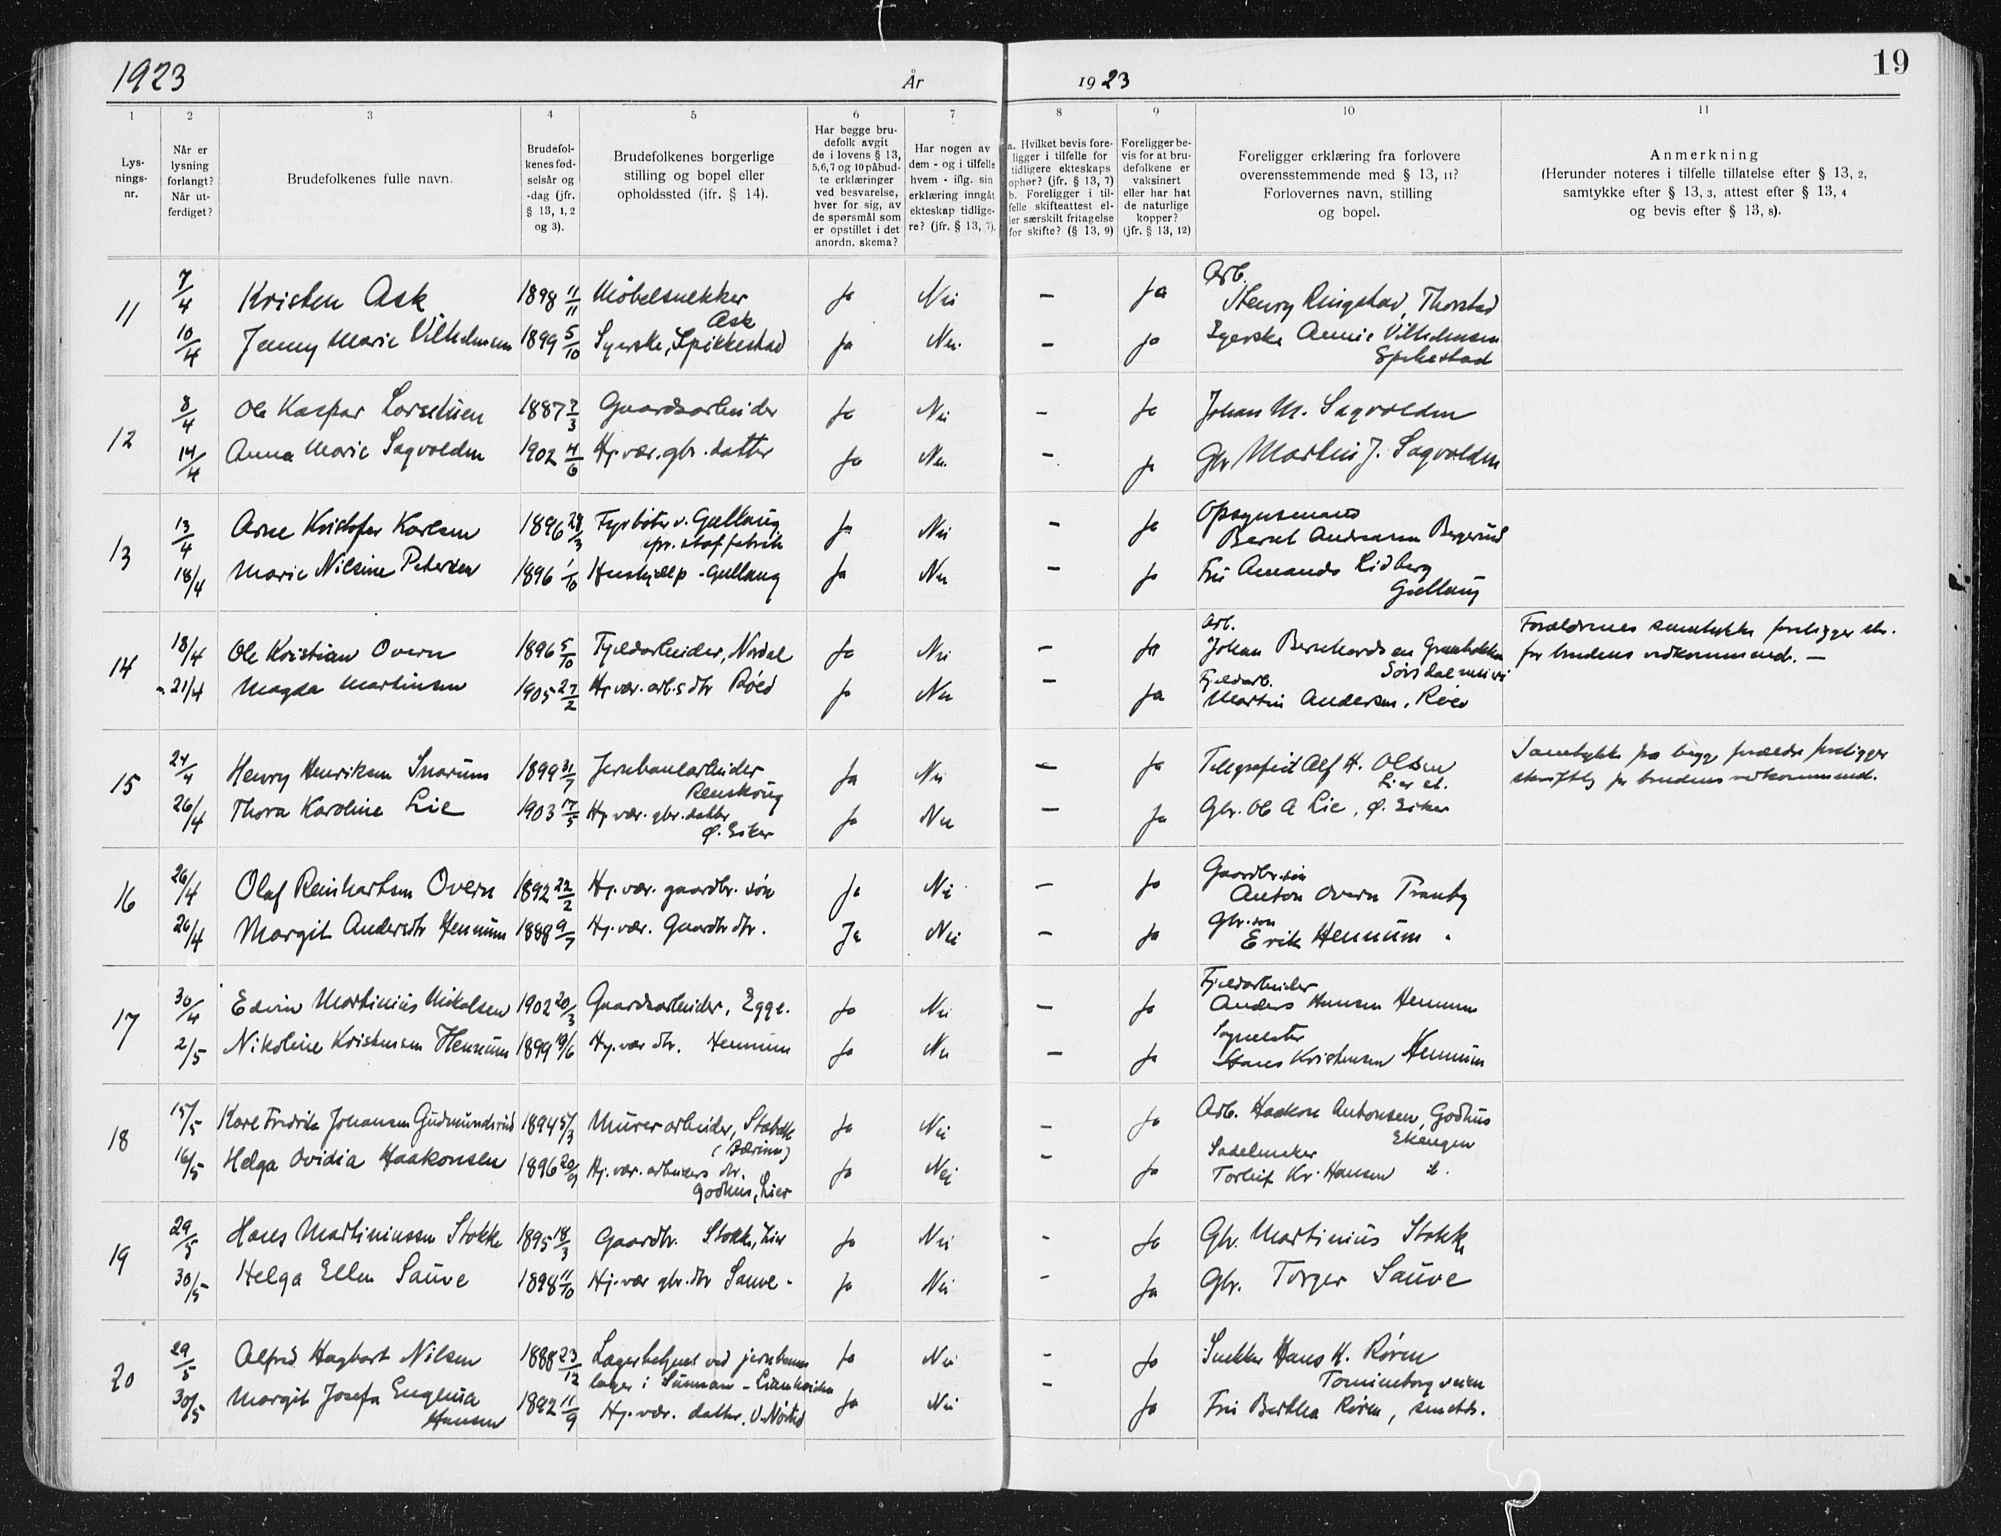 1923 År 1923 19
1 2 3 4 5 6 7 8 9 10 11
Lysningsnr.
Når er lysning forlangt? Når utferdiget?
Brudefolkenes fulle navn.
Brudefolkenes fødselsår og -dag (jfr. § 13, 1, 2 og 3).
Brudefolkenes borgerlige stilling og bopel eller opholdssted (jfr. § 14).
Har begge brudefolk avgit de i lovens § 13, 5,6,7 og 10 påbudte erklæringer ved besvarelse, hver for sig, av de spørsmål som er opstillet i det anordn. skema?
Har nogen av dem - og i tilfelle hvem - iflg. sin erklæring inngått ekteskap tidligere? (jfr. § 13, 7).
a. Hvilket bevis foreligger i tilfelle for tidligere ekteskaps ophør? (jfr. § 13, 7) b. Foreligger i tilfelle skifteattest eller særskilt fritagelse for skifte? (§ 13, 9)
Foreligger bevis for at brudefolkene er vaksinert eller har hat de naturlige kopper? (jfr. § 13, 12)
Foreligger erklæring fra forlovere overensstemmende med § 13, 11? Forlovernes navn, stilling og bopel.
Anmerkning (Herunder noteres i tilfelle tillatelse efter § 13, 2, samtykke efter § 13, 3, attest efter § 13, 4 og bevis efter § 13, 8).
11 7/4 Kristen Ask 1898 11/11 Møbelsnekker Ask Ja Nei — Ja Arb. Henry Ringstad, Thorstad
10/4 Jenny Marie Vilhelmsen 1899 5/10 Syerske, Spikkestad Ja Nei — Ja Syerske Annie Vilhelmsen Spikestad
12 8/4 Ole Kaspar Lorentsen 1887 7/3 Gaardsarbeider Ja Nei — Ja Johan M. Sagvolden
14/4 Anna Marie Sagvolden 1902 4/6 Hj. vær. gbr. datter Ja Nei — Ja Gbr Martin J. Sagvolden
13 13/4 Arne Kristofer Karlsen 1896 28/3 Fyrbøter v. Gullaug spr. stof fabrik Ja Nei — Ja Opsynsmand Bernt Andreasen Bergerud
18/4 Marie Nilsine Petersen 1896 1/10 Hushjelp - Gullaug Ja Nei — Ja Fru Amanda Lidberg Gullaug
14 18/4 Ole Kristian Overn 1896 5/10 Fjeldarbeider, Nordal Ja Nei — Ja Arb. Johan Bernhardsen Sørsdal Forældrenes samtykke foreligger skr. for brudens vedkommende. —
21/4 Magda Martinsen 1905 27/2 Hj. vær. arb.s dtr Røed Ja Nei — Ja Fjeldarb. Martin Andersen, Røed
15 24/4 Henry Henriksen Snarum 1899 31/7 Jernbanearbeider Renskoug Ja Nei — Ja Telegrafist Alf H. Olsen Lier st. Samtykke fra begge forældre foreligger skriftlig for brudens vedkommende.
26/4 Thora Karoline Lie 1903 17/5 Hj. vær. gbr. datter Ø. Eiker Ja Nei — Ja Gbr. Ole A Lie, Ø. Eiker
16 26/4 Olaf Reinhartsen Overn 1892 22/2 Hj. vær. gaardbr. søn Ja Nei — Ja Gaardbr. søn Anton Overn Tranby
26/4 Margit Andersdtr Hennum 1888 9/7 Hj. vær. Gaardbr dtr. Ja Nei — Ja Gbr. søn Erik Hennum.
17 30/4 Edvin Martinius Nikolsen 1902 20/3 Gaardsarbeider, Egge. Ja Nei — Ja Fjeldarbeider Anders Hansen Hennum
2/5 Nikoline Kristensen Hennum 1899 19/6 Hj. vær dtr. Hennum Ja Nei — Ja Sagmester Hans Kristensen Hennum
18 15/5 Karl Fredrik Johansen Gudmundsrud 1894 5/3 Murerarbeider, Stabekk (Bærum) Ja Nei — Ja Arb. Haakon Antonsen, Godhus Ekengen
16/5 Helga Ovidia Haakonsen 1896 20/9 Hj. vær. arbeiders dtr. Godhus, Lier Ja Nei — Ja Sadelmaker Torleif Kr. Hansen
19 29/5 Hans Martiniussen Stokke 1895 18/3 Gaardbr. Stokke, Lier Ja Nei — Ja Gbr. Martinius Stokke
30/5 Helga Ellen Sauve 1898 11/10 Hj. vær gbr. dtr Sauve - Ja Nei — Ja Gbr. Torger Sauve
20 29/5 Alfred Hagbart Nilsen 1888 23/12 Lagerbetjent ved jernbanens lager i Sunnan Ja Nei — Ja Snekker Hans K. Røren Tomineborgveien
30/5 Margit Josefa Eugenia Hansen 1892 11/9 Hj. vær. datter, V. Nøsted Ja Nei — Ja Fru Bertha Røren, smstds.